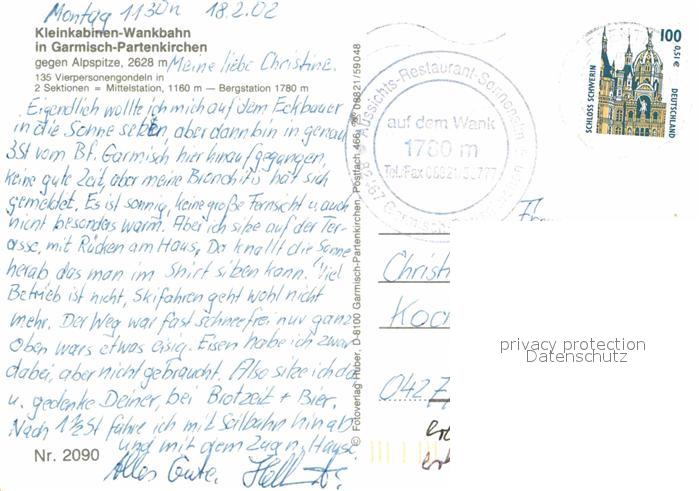 Montag 11 30h 18.2.02
Kleinkabinen-Wankbahn
in Garmisch-Partenkirchen
gegen Alpspitze, 2628 m
Meine liebe Christine.
135 Vierpersonengondeln in
2 Sektionen = Mittelstation, 1160 m — Bergstation 1780 m
Eigendlich wollte ich mich auf dem Eckbauer
in die Sonne setzen, aber dann bin in genau
3St vom Bf. Garmisch hier hinauf gegangen,
keine gute Zeit, aber meine Bronchitis hat sich
gemeldet. Es ist sonnig, keine große Fernsicht u. auch
nicht besonders warm. Aber ich sitze auf der Ter-
asse, mit Rücken am Haus, Da knallt die Sonne
herab das man im Shirt sitzen kann. Viel
Betrieb ist nicht, Skifahren geht wohl nicht
mehr. Der Weg war fast schneefrei nur ganz
oben wars etwas eisig. Eisen habe ich zwar
dabei, aber nicht gebraucht. Also sitze ich da
u. gedenke Deiner, bei Brotzeit + Bier.
Nach 1 1/2St fahre ich mit Seilbahn hinab
und mit dem Zug n. Hause.
Alles Gute.
Nr. 2090
© Fotoverlag Huber, D-8100 Garmisch-Partenkirchen, Postfach 466, ☎ 08821/59048
Aussichts-Restaurant-Sonnenalm
auf dem Wank
1780 m
Tel./Fax
Garmisch-
100
0,51 €
SCHLOSS SCHWERIN
DEUTSCHLAND
Christi
Koch
0427
privacy protection
Datenschutz